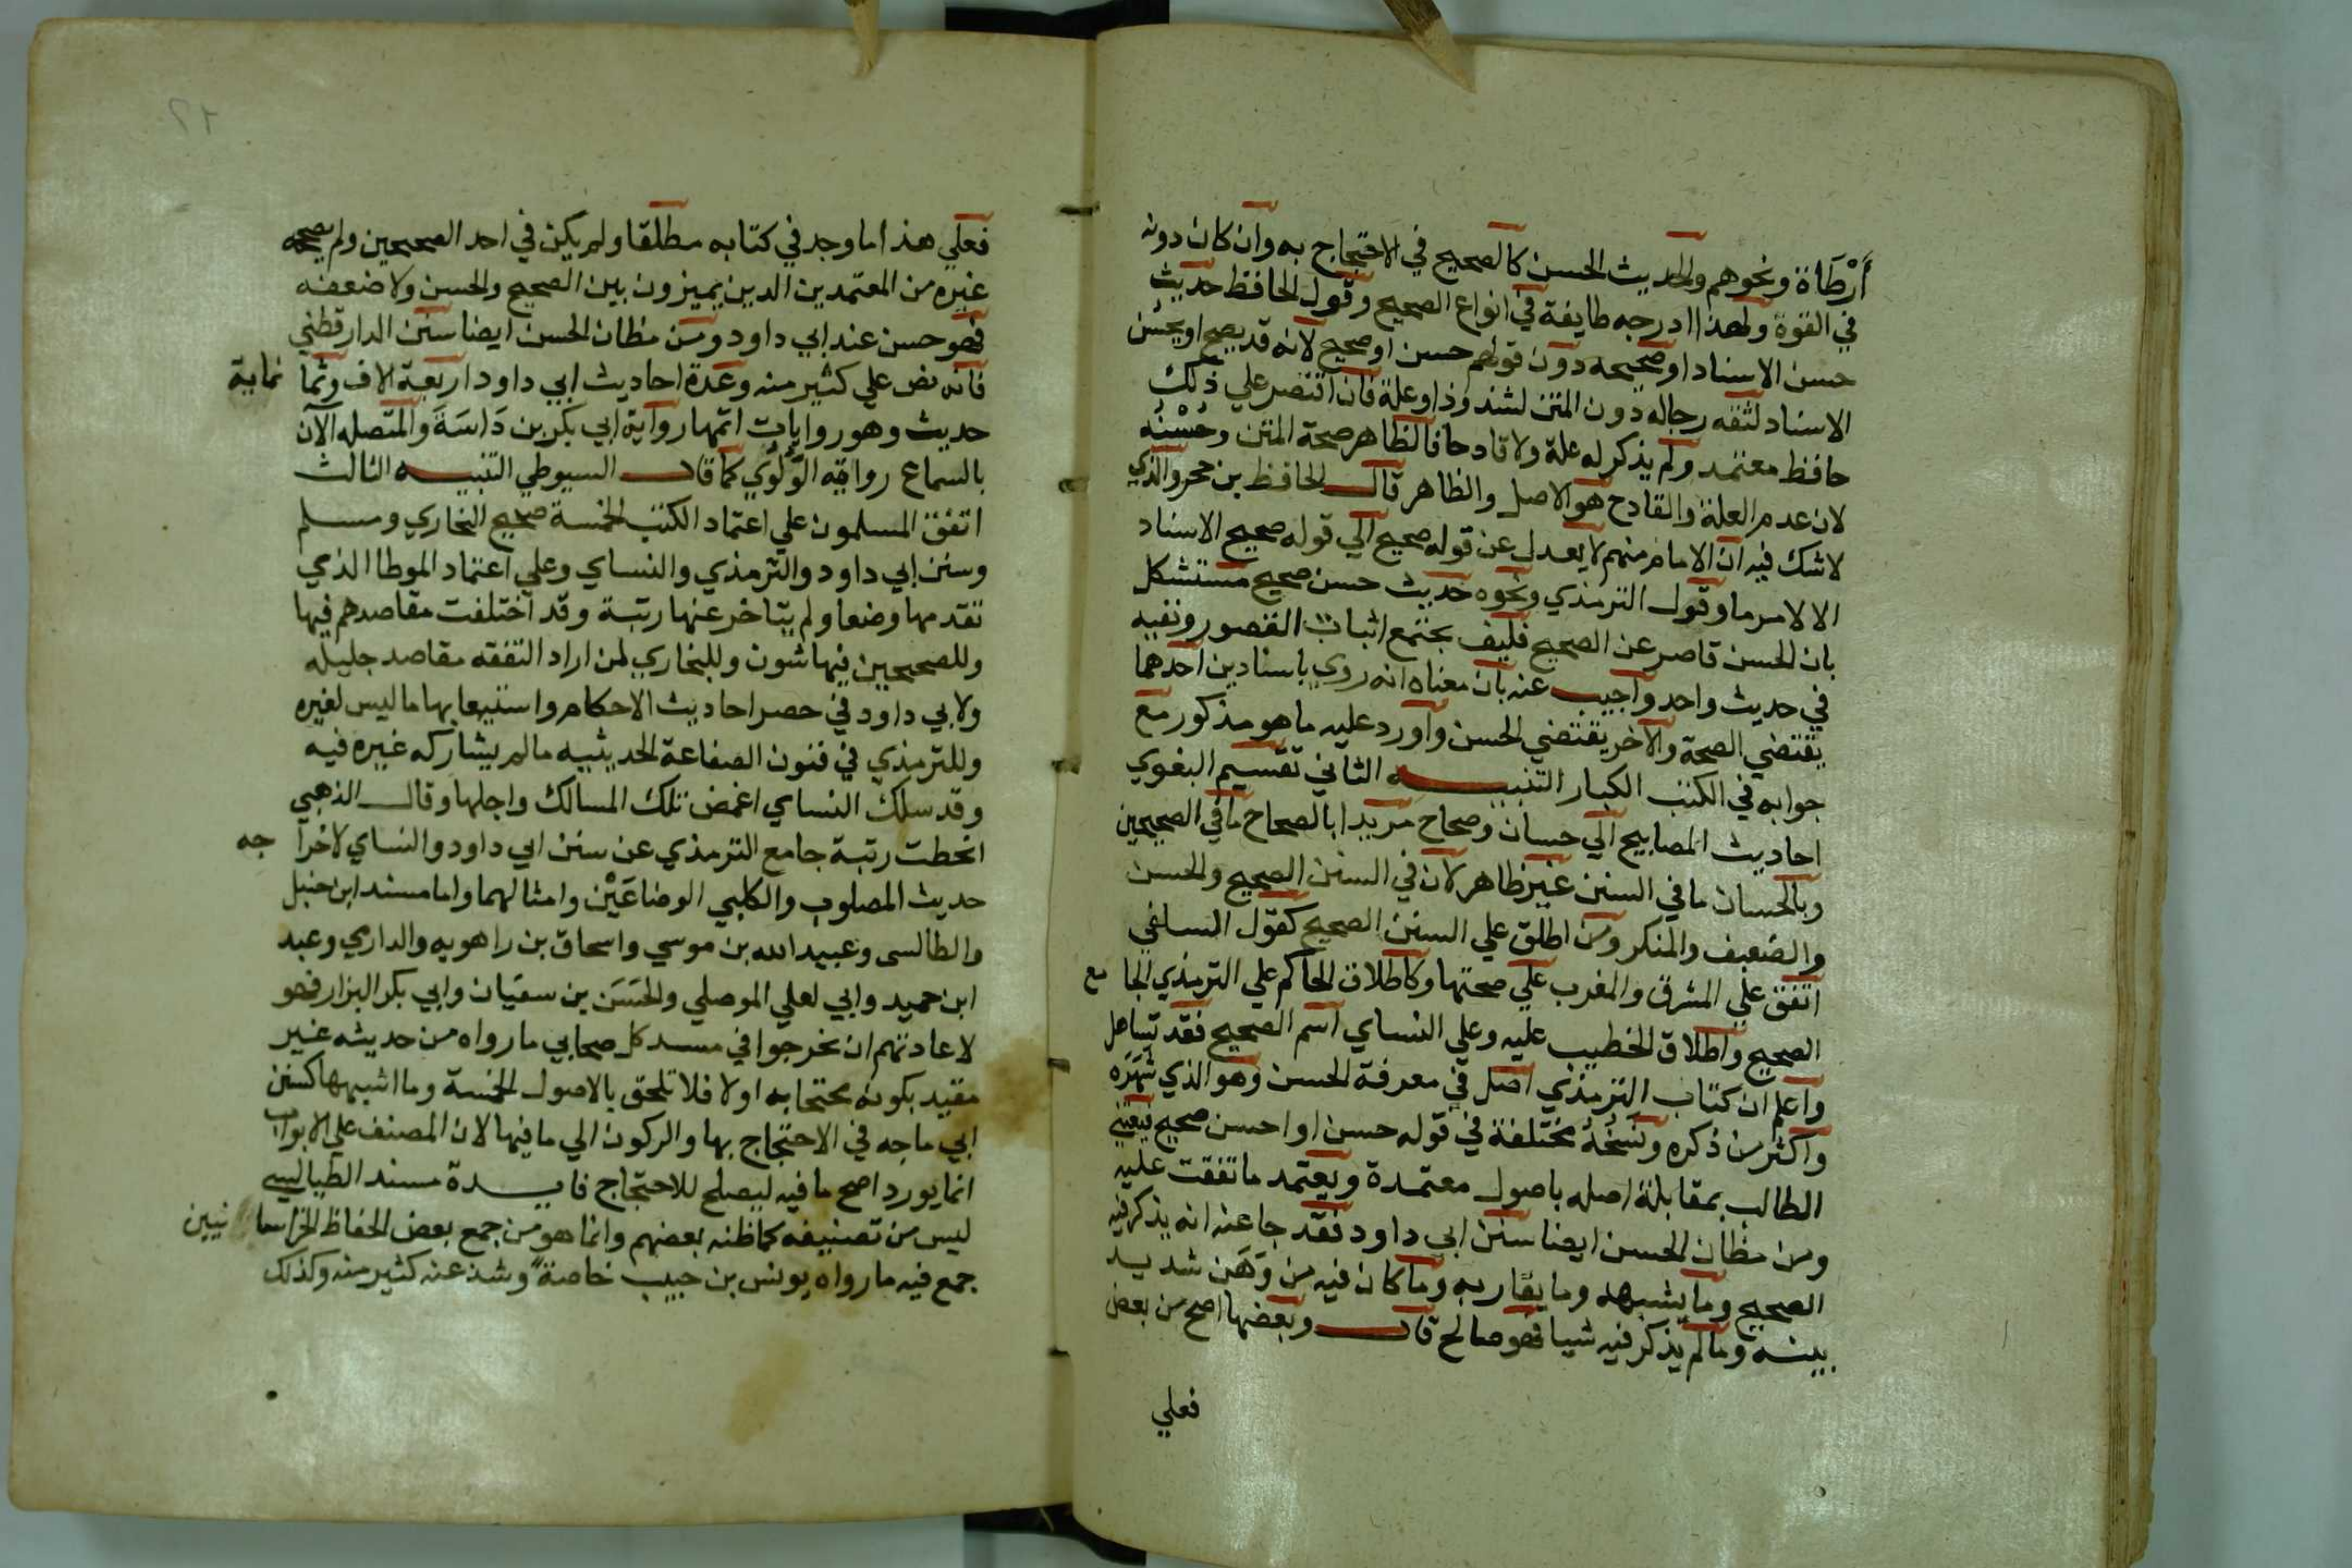 أَرْطَاة ونحوهم والحديث الحسن كالصحيح في الاحتجاج به وان كان دونه
في القوة ولهذا ادرجه طايفة في انواع الصحيح وقول الحافظ حديث
حسن الاسناد او صحيحه دون قولهم حسن او صحيح لانه قد يصح او يحسن
الاسناد لثقه رجاله دون المتن لشذوذ او علة فان اقتصر علي ذلك
حافظ معتمد ولم يذكر له علة ولا قادحا فالظاهر صحة المتن وحُسْنُه
لان عدم العلة والقادح هو الاصل والظاهر قال الحافظ بن حجر والذي
لاشك فيه ان الامام منهم لا يعدل عن قوله صحيح الي قوله صحيح الاسناد
الا لامر ما وقول الترمذي ونحوه حديث حسن صحيح مستشكل
بان الحسن قاصر عن الصحيح فكيف يجتمع اثبات القصور ونفيه
في حديث واحد واجيب عنه بان معناه انه روي باسنادين احدهما
يقتضي الصحة والآخر يقتضي الحسن واورد عليه ما هو مذكور مع
جوابه في الكتب الكبار التنبيه الثاني تقسيم البغوي
احاديث المصابيح الي حسان وصحاح مريدا بالصحاح ما في الصحيحين
وبالحسان ما في السنن غير ظاهر لان في السنن الصحيح والحسن
والضعيف والمنكر ومن اطلق علي السنن الصحيح كقول السلفي
اتفق علي المشرق والمغرب علي صحتها وكاطلاق الحاكم علي الترمذي الجا مع
الصحيح واطلاق الخطيب عليه وعلي النساي اسم الصحيح فقد تساهل
واعلم ان كتاب الترمذي اصل في معرفة الحسن وهو الذي شَهَرَه
واكثر من ذكره ونُسَخُهُ مختلفة في قوله حسن او احسن صحيح فيعتني
الطالب بمقابلة اصله باصول معتمدة ويعتمد ما تفقت عليه
ومن مظان الحسن ايضا سنن ابي داود فقد جا عنه انه يذكر فيه
الصحيح وما يشبهه وما يقاربه وما كان فيه من وَهَن شديد
بينه وما لم يذكر فيه شيا فهو صالح قال وبعضها اصح من بعض
فعلي
فعلي هذا ما وجد في كتابه مطلقا ولم يكن في احد الصحيحين ولم يصححه
غيره من المعتمدين الدين يميزون بين الصحيح والحسن ولا ضعفه
فهو حسن عند ابي داود ومن مظان الحسن ايضا سنن الدارقطني
فانه نص علي كثير منه وعدة احاديث ابي داود اربعة الاف وثما نماية
حديث وهو روايات اتمها رواية ابي بكر بن دَاسَةَ والمتصله الآن
بالسماع رواية اللؤلؤي كما قال السيوطي التنبيه الثالث
اتفق المسلمون علي اعتماد الكتب الخمسة صحيح البخاري ومسلم
وسنن ابي داود والترمذي والنساي وعلي اعتماد الموطا الذي
تقدمها وضعا ولم يتاخر عنها رتبة وقد اختلفت مقاصدهم فيها
وللصحيحين فيها شون وللبخاري لمن اراد التفقه مقاصد جليله
ولابي داود في حصر احاديث الاحكام واستيعابها ما ليس لغيره
وللترمذي في فنون الصناعة الحديثيه مالم يشاركه غيره فيه
وقد سلك النساي اغمض تلك المسالك واجلها وقال الذهبي
انحطت رتبة جامع الترمذي عن سنن ابي داود والنساي لاخرا جه
حديث المصلوب والكلبي الوضاعَيْن وامثالهما واما مسند ابن حنبل
والطالسى وعبيد الله بن موسي واسحاق بن راهويه والدارمي وعبد
ابن حميد وابي لعلي الموصلي والحَسَن بن سفيان وابي بكر البزار فهو
لا عادتهم ان نخرجوا في مسند كل صحابي ما رواه من حديثه غير
مقيد بكونه محتجا به او لا فلا تلحق بالاصول الخمسة وما اشبهها كسنن
ابي ماجه في الاحتجاج بها والركون الي ما فيها لان المصنف علي الابواب
انما يورد اصح ما فيه ليصلح للاحتجاج فايدة مسند الطيالسي
ليس من تصنيفه كما ظنه بعضهم وانما هو من جمع بعض الحفاظ الخراسا نيين
جمع فيه ما رواه يونس بن حبيب خاصةً وشذ عنه كثير منه وكذلك